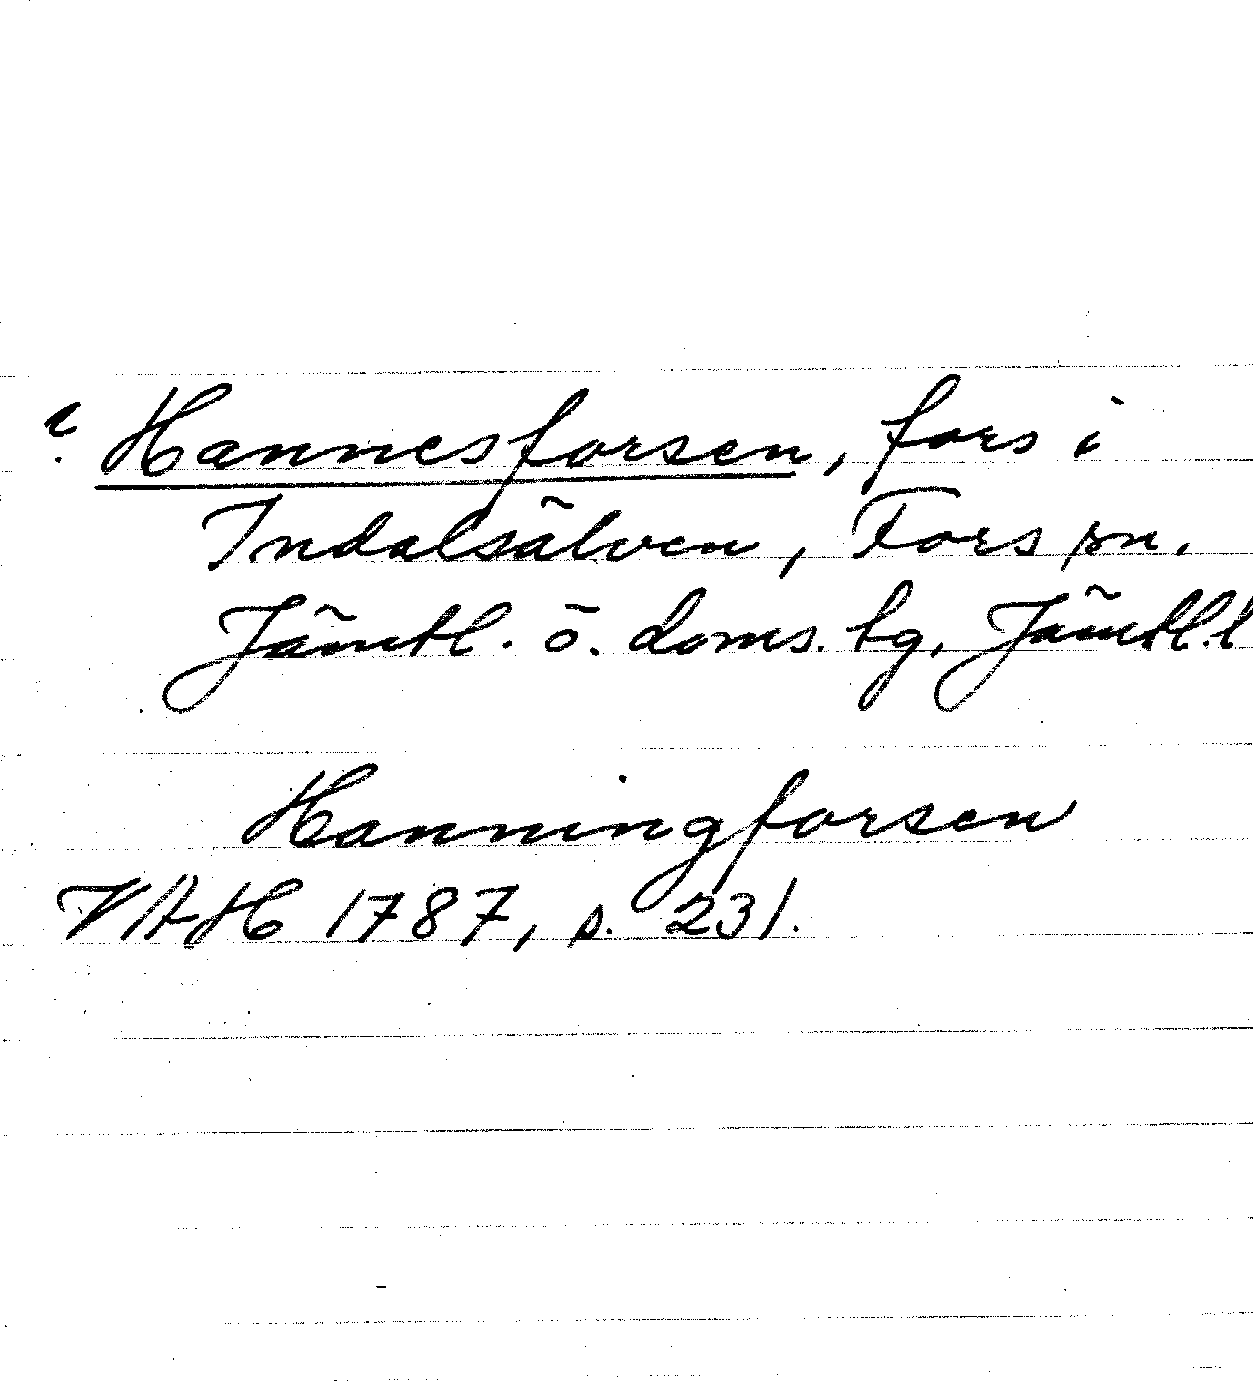 ? Hannesforsen, fors i
Indalsälven, Fors sn.
Jämtl. ö. doms. tg, Jämtl. l
Hanningforsen
VAH 1787, s. 231.